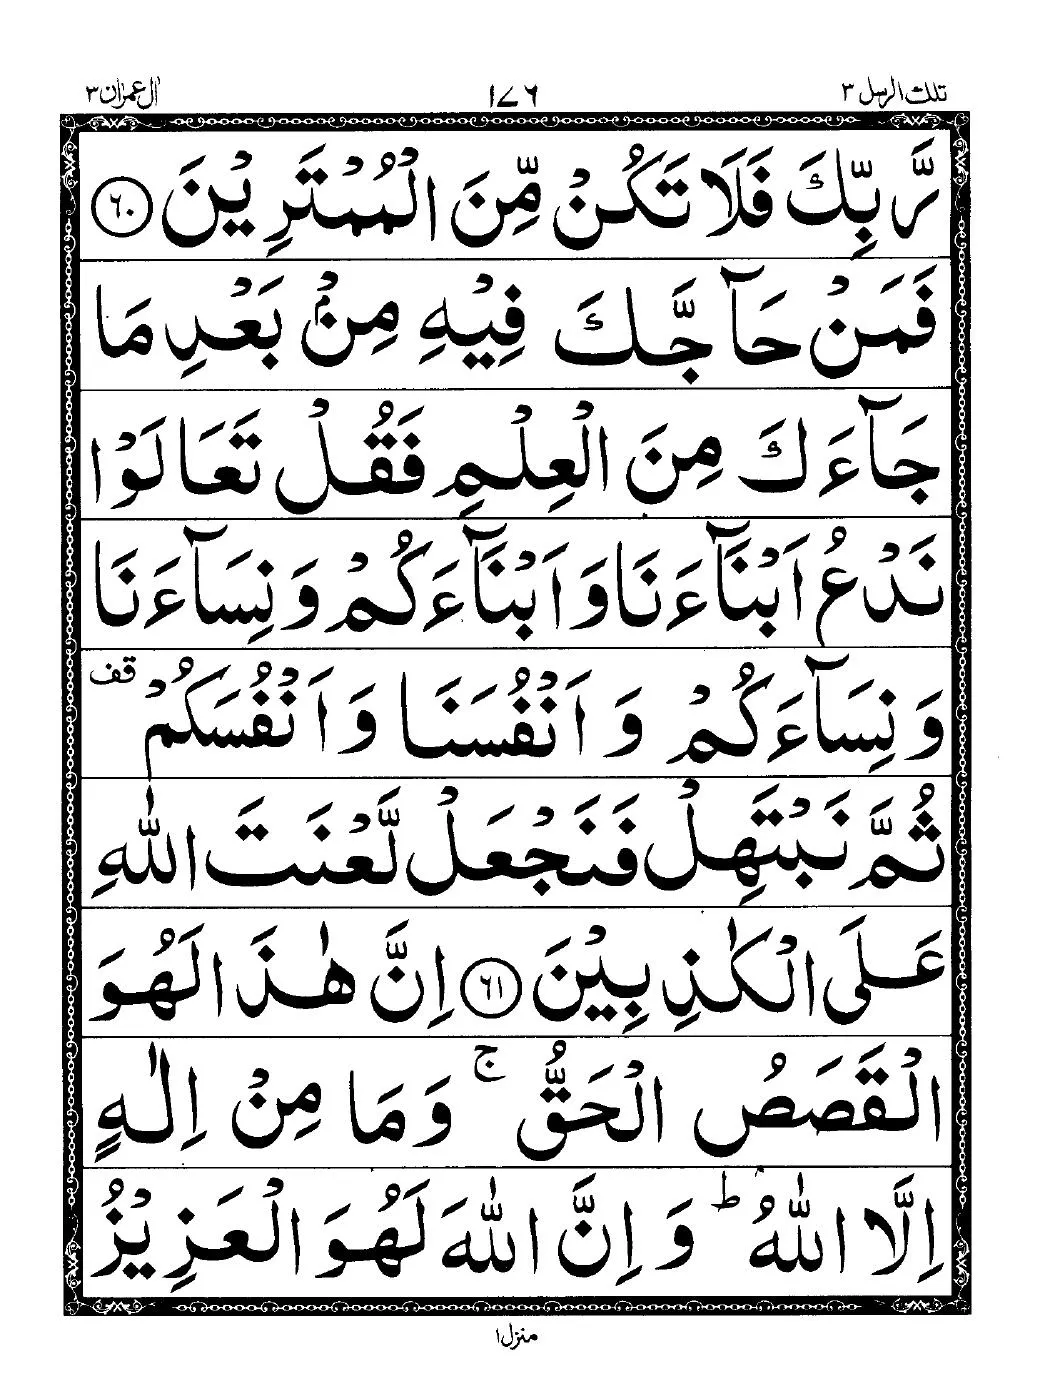 تلك الرسل ٣
١٧٦
اٰل عمرٰن ٣
رَّبِّكَ فَلَا تَكُنْ مِّنَ الْمُمْتَرِيْنَ ﴿٦٠﴾
فَمَنْ حَآجَّكَ فِيْهِ مِنْۢ بَعْدِ مَا
جَآءَكَ مِنَ الْعِلْمِ فَقُلْ تَعَالَوْا
نَدْعُ اَبْنَآءَنَا وَاَبْنَآءَكُمْ وَنِسَآءَنَا
وَنِسَآءَكُمْ وَاَنْفُسَنَا وَاَنْفُسَكُمْ قف
ثُمَّ نَبْتَهِلْ فَنَجْعَلْ لَّعْنَتَ اللّٰهِ
عَلَى الْكٰذِبِيْنَ ﴿٦١﴾ اِنَّ هٰذَا لَهُوَ
الْقَصَصُ الْحَقُّ ۚ وَمَا مِنْ اِلٰهٍ
اِلَّا اللّٰهُ ؕ وَاِنَّ اللّٰهَ لَهُوَ الْعَزِيْزُ
منزل ١